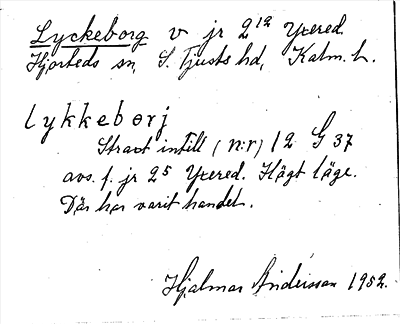 Lyckeborg v jr 2¹² Yxered.
Hjorteds sn, S. Tjusts hd, Kalm. l.
lykkeborj
Straxt intill (n:r) 12 G 37
avs. f. jr 2⁵ Yxered. Högt läge.
Där har varit handel.
Hjalmar Andersson 1952.